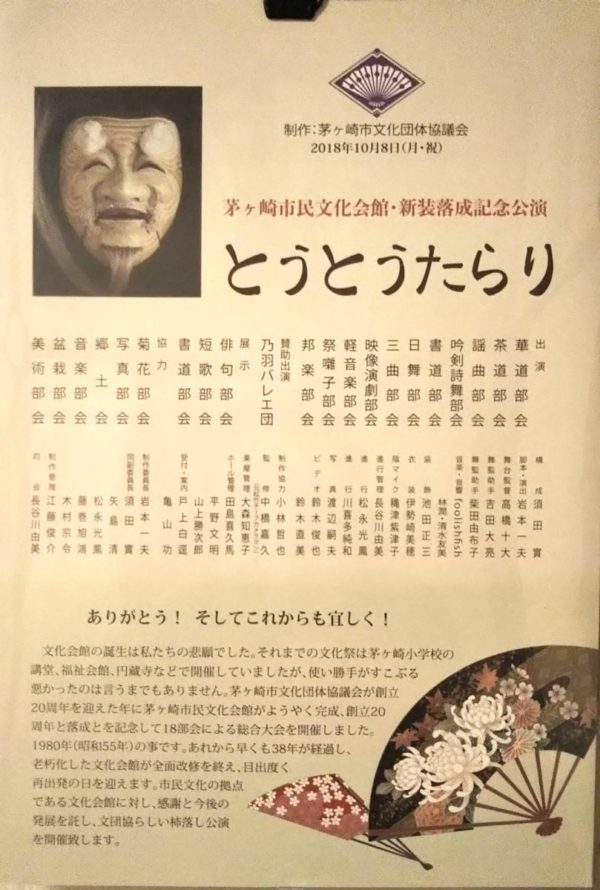 制作:茅ヶ崎市文化団体協議会
2018年10月8日(月・祝)
茅ヶ崎市民文化会館・新装落成記念公演
とうとうたらり
出演
華道部会
茶道部会
謡曲部会
吟剣詩舞部会
書道部会
日舞部会
三曲部会
映像演劇部会
軽音楽部会
祭囃子部会
邦楽部会
賛助出演
乃羽バレエ団
展示
俳句部会
短歌部会
書道部会
協力
菊花部会
写真部会
郷土会
音楽部会
盆栽部会
美術部会
構成 須田實
脚本・演出 岩本一夫
舞台監督 高橋十大
舞監助手 吉田大亮
舞監助手 柴田由布子
音楽・音響 foolishfish
林潤・清水友美
装飾 池田正三
衣装 伊勢崎美穂
陰マイク 穐津紫津子
進行管理 長谷川由美
進行 松永光風
進行 川喜多純和
写真 渡辺嗣夫
ビデオ 鈴木俊也
鈴木直美
制作協力 小林哲也
監修 中橋嘉久
楽屋管理 大森知恵子
ホール管理 田島喜久馬
平野文明
山上勝次郎
受付・案内 戸上白逕
亀山功
制作委員長 岩本一夫
同副委員長 須田實
矢島清
松永光風
藤巻旭鴻
木村宗令
制作管理 江藤俊介
司会 長谷川由美
ありがとう! そしてこれからも宜しく!
文化会館の誕生は私たちの悲願でした。それまでの文化祭は茅ヶ崎小学校の
講堂、福祉会館、円蔵寺などで開催していましたが、使い勝手がすこぶる
悪かったのは言うまでもありません。茅ヶ崎市文化団体協議会が創立
20周年を迎えた年に茅ヶ崎市民文化会館がようやく完成、創立20
周年と落成とを記念して18部会による総合大会を開催しました。
1980年(昭和55年)の事です。あれから早くも38年が経過し、
老朽化した文化会館が全面改修を終え、目出度く
再出発の日を迎えます。市民文化の拠点
である文化会館に対し、感謝と今後の
発展を託し、文団協らしい杮落し公演
を開催致します。